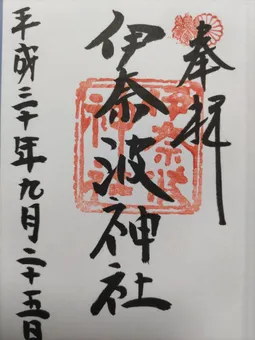 奉拝
伊奈波神社
伊奈波
神社
平成三十年九月二十五日